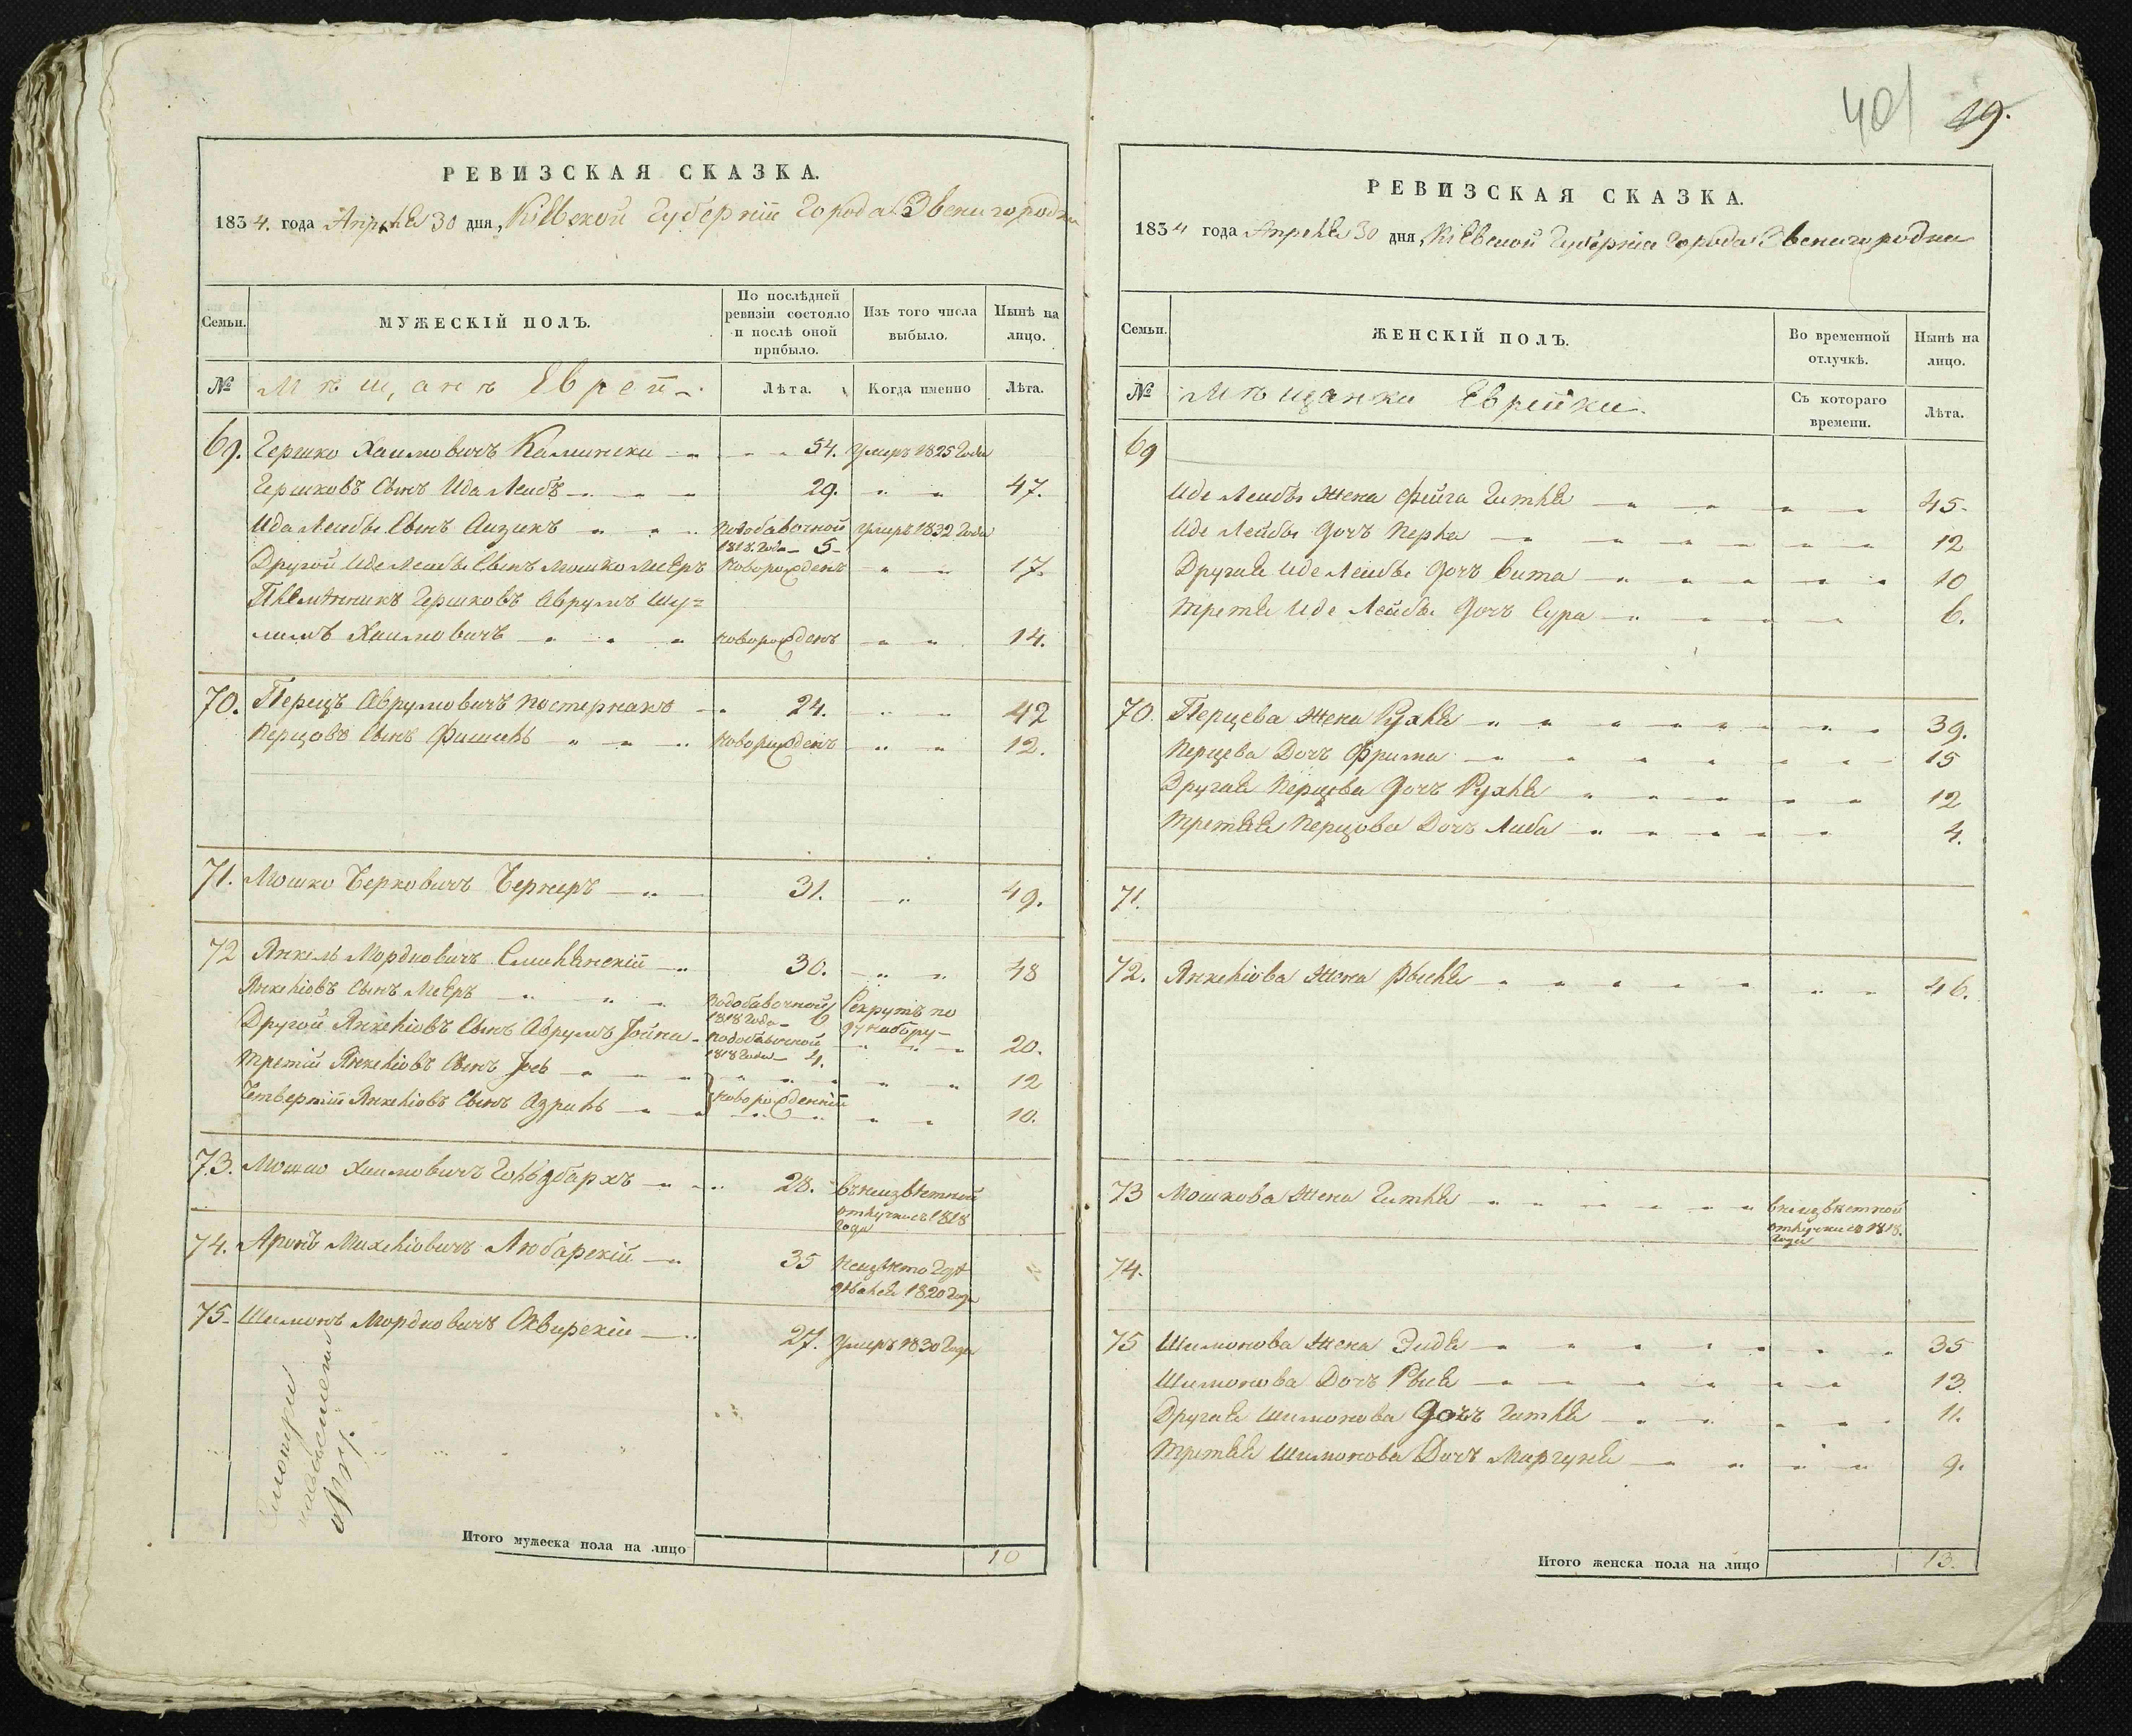 РЕВИЗСКАЯ СКАЗКА.
1834. года Апрѣля 30 дня, Кіевской Губерніи Города Звенигородки
Семьи.
МУЖЕСКІЙ ПОЛЪ.
По послѣдней ревизіи состояло и послѣ оной прибыло.
Изъ того числа выбыло.
Нынѣ на лицо.
№ Мѣщанъ Еврей Лѣта. Когда именно Лѣта.
69. Гершко Хаимовичъ Камински 54. умеръ 1825 года
Гершковъ Сынъ Ида Лейбъ 29. 47.
Ида Лейбы Сынъ Аизикъ подобавочной 1818. года 5 умеръ 1832 года
Другой Иде Лейбы Сынъ Мошко Мееръ новорожденъ 17.
Племянникъ Гершковъ Аврумъ Шу=
лимъ Хаимовичъ новорожденъ 14.
70. Перецъ Аврумовичъ Постернакъ 24. 42
Перцовъ Сынъ Фишель новорожденъ 12.
71. Мошко Берковичъ Бернеръ 31. 49.
72 Янкель Мордковичъ Смилянскій 30. 48
Янкеліовъ Сынъ Мееръ подобавочной 1818 года 6 Рекрутъ по 97 набору
Другой Янкеліовъ Сынъ Аврумъ Іойна подобавочной 1818 года 4. 20.
Третій Янкеліовъ Сынъ Іось 12
Четвертій Янкеліовъ Сынъ Азриль новорожденній 10.
73. Мошко Хаимовичъ Гольдбархъ 28. въ неизвѣстной отлучки съ 1818 года
74. Аронъ Михеліовичъ Любарскій 35 неизвѣстно где девался 1820 года
75. Шимонъ Мордковичъ Сквирскіи 27. умеръ 1830 года
Итого мужеска пола на лицо 10
401 19.
РЕВИЗСКАЯ СКАЗКА.
1834 года Апрѣля 30 дня, Кіевской Губерніи Города Звенигородки
Семьи.
ЖЕНСКІЙ ПОЛЪ.
Во временной отлучкѣ.
Нынѣ на лицо.
№ Мѣщанки Еврейки. Съ котораго времени. Лѣта.
69
Иде Лейбы жена Фейга Гитля 45.
Иде Лейбы дочъ Перля 12
Другая Иде Лейбы дочъ Бита 10
Третя Иде Лейбы дочъ Сура 6.
70. Перцева жена Рухля 39.
Перцева Дочъ Фрима 15
Другая Перцова дочъ Рухля 12
Третяя Перцова Дочъ Либа 4.
71.
72. Янкеліова жена Рысля 46.
73 Мошкова жена Гитля в неизвѣстной отлучки съ 1818. года
74.
75 Шимонова жена Эидя 35
Шимонова Дочъ Рыся 13.
Другая Шимонова Дочъ Гитля 11.
Третяя Шимонова Дочъ Маргуля 9.
Итого женска пола на лицо 13.